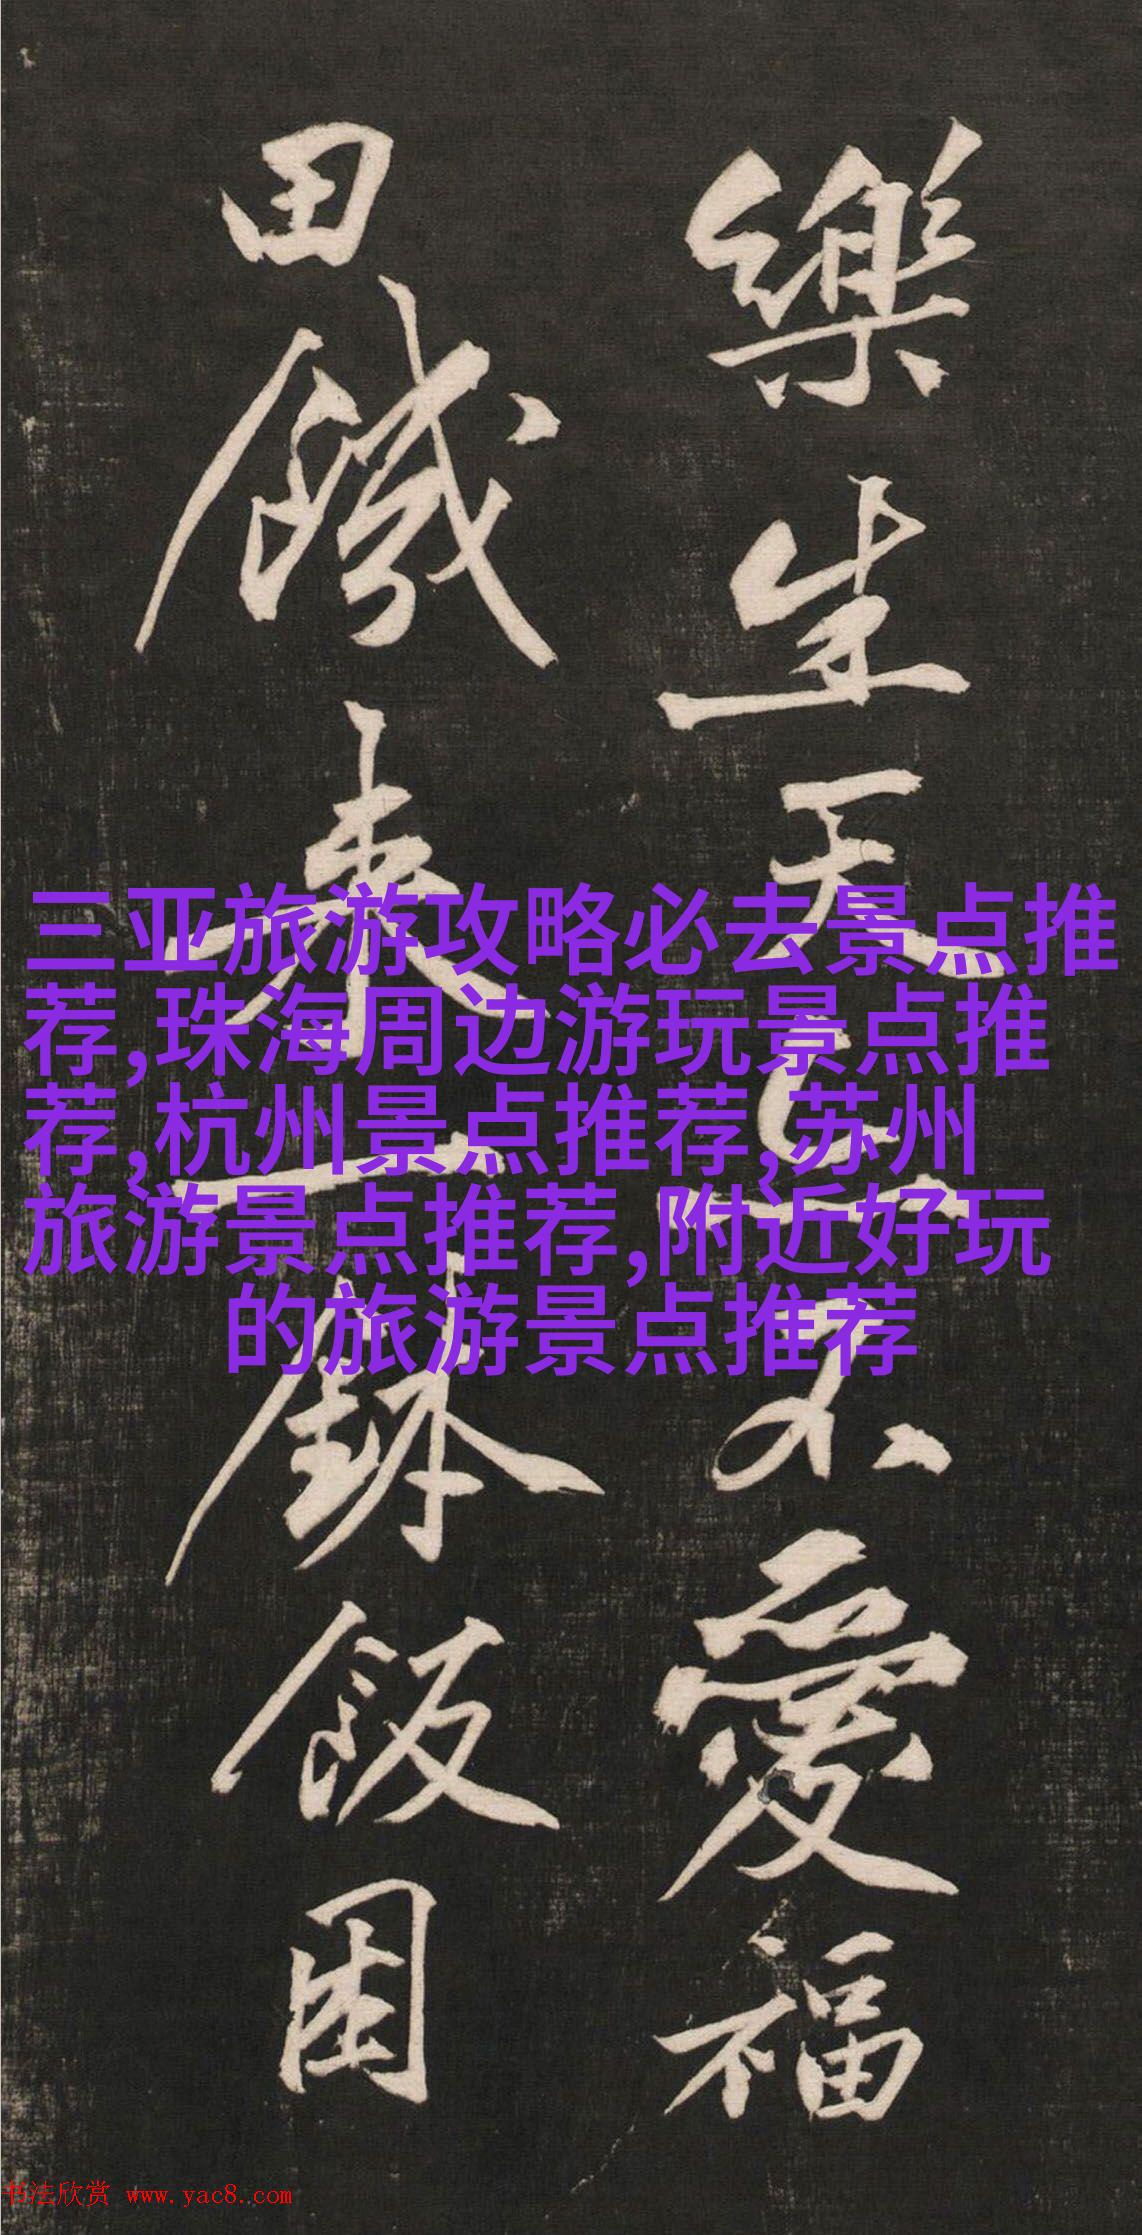 樂生天上不愛福
田饑来一鉢飯困
三亚旅游攻略必去景点推
荐,珠海周边游玩景点推
荐,杭州景点推荐,苏州
旅游景点推荐,附近好玩
的旅游景点推荐
书法欣赏 www.yac8.com